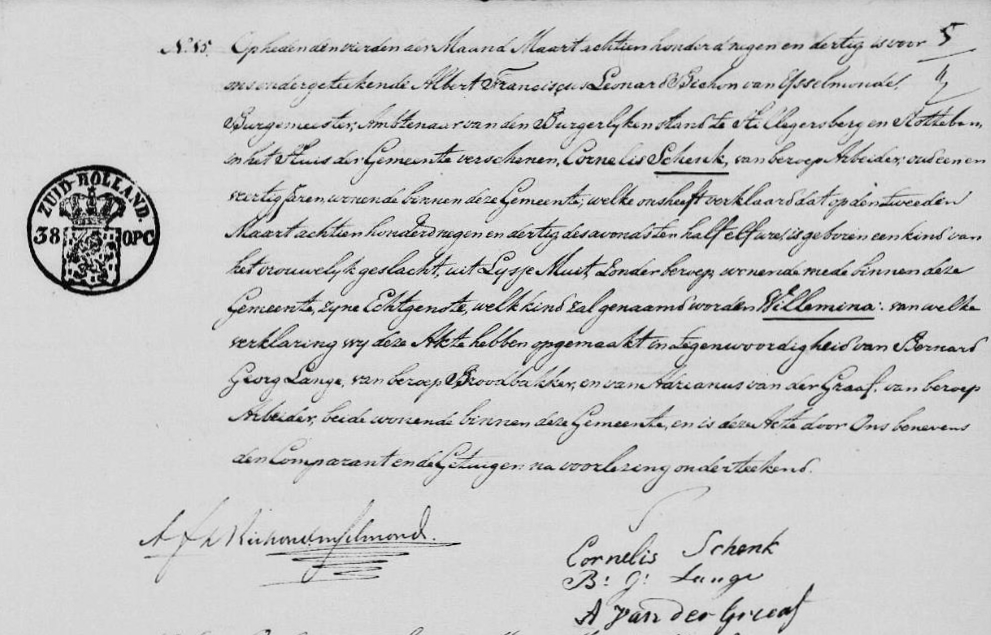 No. 15. Op heden den vierden der Maand Maart achtien honderd negen en dertig is voor 5
ons ondergeteekende Albert Franciscus Leonard Bichon van IJsselmonde,
Burgemeester, Ambtenaar van den Burgerlyken stand te Hillegersberg en Rotteban,
in het Huis der Gemeente verschenen, Cornelis Schenk, van beroep Arbeider, oud een en
veertig Jaren, wonende binnen deze Gemeente, welke ons heeft verklaard dat op den tweeden
Maart achtien honderd negen en dertig des avonds ten half elf ure, is geboren een kind van
het vrouwelyk geslacht, uit Lysje Muit, Zonder beroep, wonende mede binnen deze
Gemeente, zyne Echtgenote, welk kind zal genaamd worden Willemina: van welke
verklaring wy deze Akte hebben opgemaakt in tegenwoordigheid van Bernard
Georg Lange, van beroep Broodbakker, en van Adrianus van der Graaf, van beroep
Arbeider, beide wonende binnen deze Gemeente, en is deze Akte door Ons benevens
den Comparant en de Getuigen na voorlezing onderteekend.
ZUID-HOLLAND.
38 OPC
Cornelis Schenk
B: G: Lange
A van der Graaf